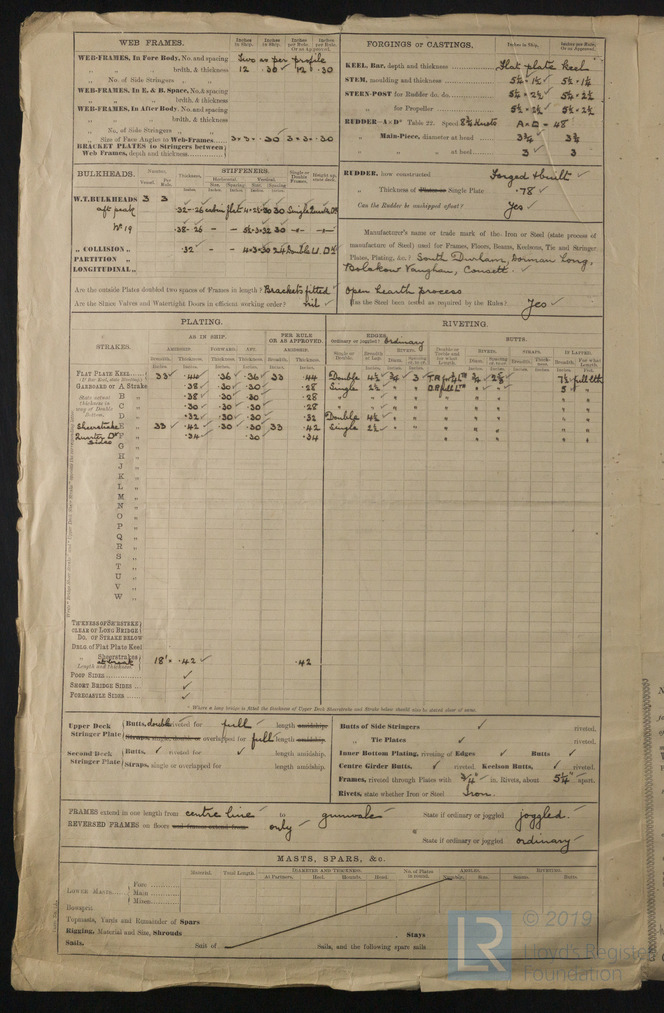 WEB FRAMES.
Inches in Ship. Inches in Ship. Inches per Rule Or as Approved. Inches per Rule Or as Approved.
WEB-FRAMES, In Fore Body, No. and spacing Two as per profile
„ „ brdth. & thickness 12 .30 12 .30
„ No. of Side Stringers „
WEB-FRAMES, In E. & B. Space, No. and spacing
„ „ brdth. & thickness
WEB-FRAMES, In After Body, No. and spacing
„ „ brdth. & thickness
„ No. of Side Stringers „
„ Size of Face Angles to Web-Frames 3 × 3 × .30 3 × 3 × .30
BRACKET PLATES to Stringers between Web Frames, depth and thickness
FORGINGS or CASTINGS.
Inches in Ship. Inches per Rule, Or as Approved.
KEEL, Bar, depth and thickness Flat plate keel
STEM, moulding and thickness 5¼ × 1½ 5¼ × 1¼
STERN-POST for Rudder do. do. 5¼ × 2½ 5¼ × 2½
„ for Propeller 5¼ × 2½ 5¼ × 2½
RUDDER—A × D² Table 22. Speed 8¾ Knots A × D = 48
„ Main-Piece, diameter at head 3¾ 3¾
„ „ at heel 3 3
RUDDER, how constructed Forged & built
„ Thickness of Single Plate .78
Can the Rudder be unshipped afloat? Yes
BULKHEADS.
Number. Vessel. Per Rule. Thickness. STIFFENERS. Horizontal. Vertical. Size. Spacing. Size. Spacing. Single or Double Frames. Height up, state deck.
W.T. BULKHEADS 3 3
aft peak .32-.26 cabin flat
No 19 .38-.26 – –
„ COLLISION „ .32 – – 4×3×.30 24 Double
PARTITION „
LONGITUDINAL „
Are the outside Plates doubled two spaces of Frames in length? Brackets fitted
Are the Sluice Valves and Watertight Doors in efficient working order? Nil
Manufacturer's name or trade mark of the Iron or Steel (state process of
manufacture of Steel) used for Frames, Floors, Beams, Keelsons, Tie and Stringer
Plates, Plating, &c.? South Durham, Dorman Long,
Bolckow Vaughan, Consett.
Open hearth process
Has the Steel been tested as required by the Rules? Yes
PLATING.
RIVETING.
STRAKES.
AS IN SHIP. PER RULE OR AS APPROVED.
AMIDSHIP. FORWARD. AFT. AMIDSHIP.
Breadth. Thickness. Thickness. Thickness. Breadth. Thickness.
EDGES. Ordinary or joggled? Ordinary
BUTTS.
Single or Double. Breadth of Lap. RIVETS. Diam. Spacing
STRAPS. Breadth. Thickness. IF LAPPED. Breadth. For what Length.
FLAT PLATE KEEL 33 .44 .36 .36 33 .44 Double 4½ ¾ 3
GARBOARD or A Strake .38 .30 .30 .28 Single 2½
State actual thickness in way of Double Bottom.
B „ .38 .30 .30 .28
C „ .30 .30 .30 .28
D „ .32 .30 .30 .32 Double 4½
Sheerstrake E „ 33 .42 .30 .30 33 .42 Single 2½
Quarter Dk Sides F „ .34 .30 .34
G „
H „
J „
K „
L „
M „
N „
O „
P „
Q „
R „
S „
T „
U „
V „
W „
THICKNESS OF SHEERSTRAKE CLEAR OF LONG BRIDGE
DO. OF STRAKE BELOW
DBLG. of Flat Plate Keel
„ Sheerstrakes at break 18' × .42 .42
Length and thickness
POOP SIDES
SHORT BRIDGE SIDES
FORECASTLE SIDES
* Where a long bridge is fitted the thickness of Upper Deck Sheerstrake and Strake below should also be stated clear of same.
Upper Deck Stringer Plate Butts, double riveted for full length amidship.
Straps, single, double or overlapped for full length amidship.
Second Deck Stringer Plate Butts, riveted for length amidship.
Straps, single or overlapped for length amidship.
Butts of Side Stringers riveted.
„ Tie Plates riveted.
Inner Bottom Plating, riveting of Edges Butts
Centre Girder Butts, riveted. Keelson Butts, riveted.
Frames, riveted through Plates with ¾" in. Rivets, about 5¼" apart.
Rivets, state whether Iron or Steel Iron.
FRAMES extend in one length from centre line to gunwale State if ordinary or joggled joggled.
REVERSED FRAMES on floors and frames extend from only
State if ordinary or joggled ordinary
MASTS, SPARS, &c.
Material. Total Length. DIAMETER AND THICKNESS. At Partners. Heel. Hounds. Head. No. of Plates in round. ANGLES. Number. Size. RIVETING. Seams. Butts.
LOWER MASTS Fore
Main
Mizen
Bowsprit
Topmasts, Yards and Remainder of Spars
Rigging, Material and Size, Shrouds Stays
Sails. Suit of Sails, and the following spare sails
LR
© 2019
Lloyd's Register
Foundation